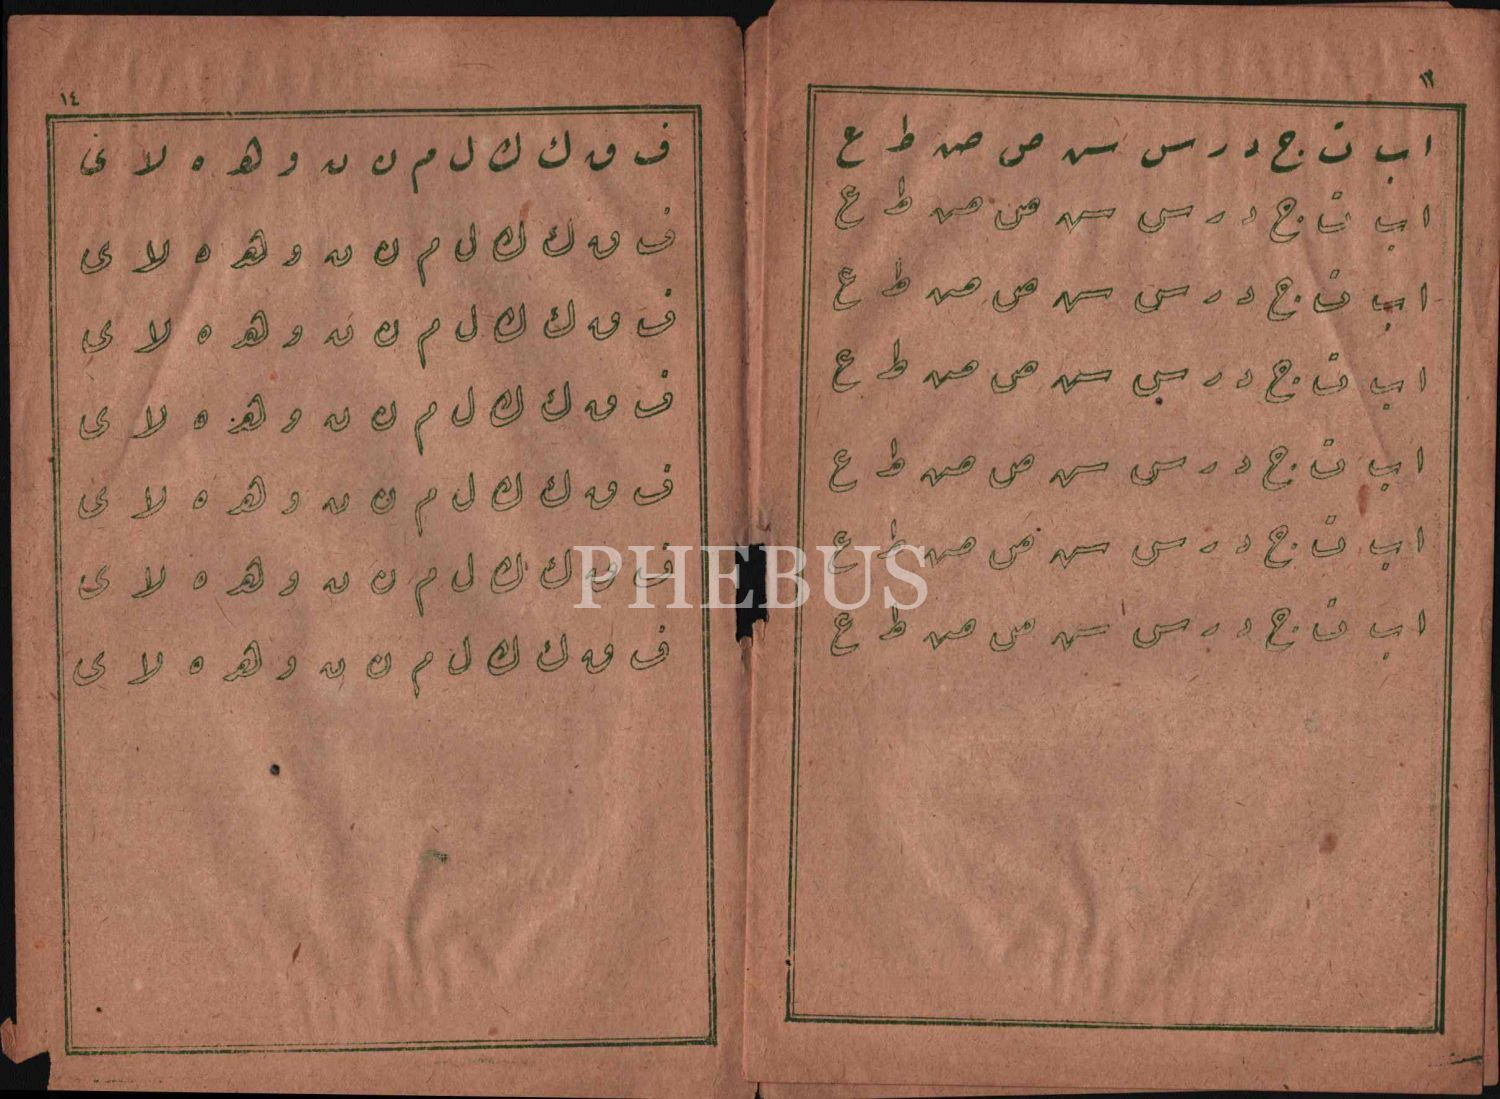 ١٣
ا ب ت ج د ر س س ص ص ط ع
ا ب ت ج د ر س س ص ص ط ع
ا ب ت ج د ر س س ص ص ط ع
ا ب ت ج د ر س س ص ص ط ع
ا ب ت ج د ر س س ص ص ط ع
ا ب ت ج د ر س س ص ص ط ع
ا ب ت ج د ر س س ص ص ط ع
١٤
ف ق ك ك ل م ن ن و ه ه لا ى
ف ق ك ك ل م ن ن و ه ه لا ى
ف ق ك ك ل م ن ن و ه ه لا ى
ف ق ك ك ل م ن ن و ه ه لا ى
ف ق ك ك ل م ن ن و ه ه لا ى
ف ق ك ك ل م ن ن و ه ه لا ى
ف ق ك ك ل م ن ن و ه ه لا ى
PHEBUS